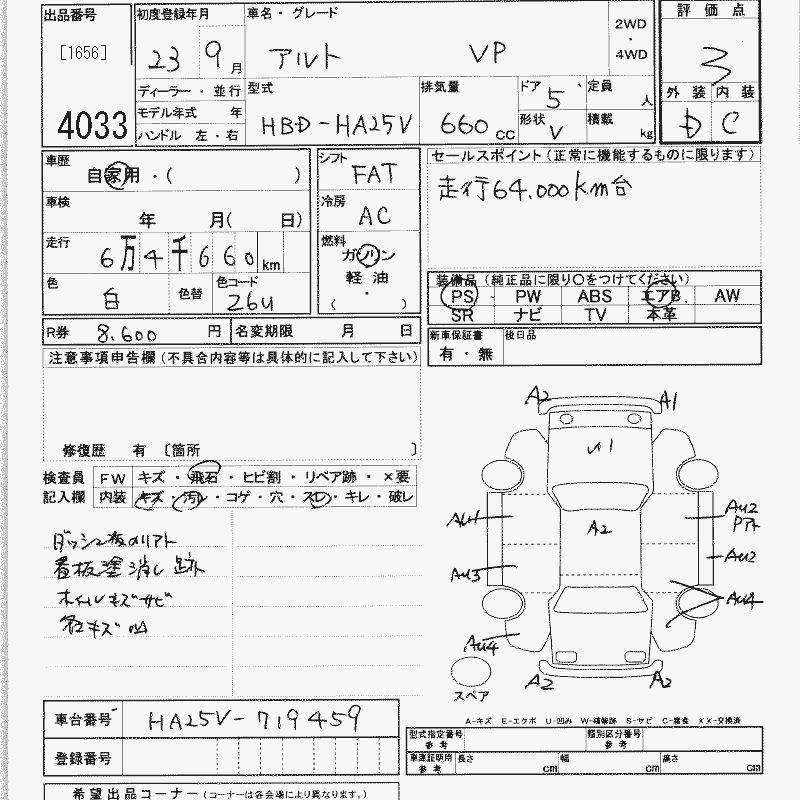 出品番号
[1656]
4033
初度登録年月
23 9月
車名・グレード
アルト VP
2WD
・
4WD
評価点
3
外装 内装
D C
ディーラー・並行
モデル年式 年
ハンドル 左・右
型式
HBD-HA25V
排気量
660cc
ドア 5
形状 V
定員 人
積載 kg
車歴
自家用・( )
車検
年 月( 日)
走行
6万4千660km
色
白
色替
色コード
26U
シフト
FAT
冷房
AC
燃料
ガソリン
軽油
・
( )
セールスポイント(正常に機能するものに限ります)
走行64.000km台
装備品(純正品に限り○をつけてください)
PS・PW ABS エアB. AW
SR ナビ TV 本革
R券 8,600円
名変期限 月 日
新車保証書
有・無
後日品
注意事項申告欄(不具合内容等は具体的に記入して下さい)
修復歴 有 〔箇所 〕
検査員
記入欄
FW キズ・飛石・ヒビ割・リペア跡・×要
内装 キズ・汚レ・コゲ・穴・スレ・キレ・破レ
看板塗消し跡
ホイルキズサビ
A2 A1
A2
AU1
AU2
AU2
AU3
AU4
AU4
A2 A2
スペア
A-キズ E-エクボ U-凹み W-補修跡 S-サビ C-腐食 XX-交換済
車台番号
HA25V-719459
登録番号
型式指定番号
参考
類別区分番号
参考
車庫証明用
参考
長さ cm
幅 cm
高さ cm
希望出品コーナー(コーナーは各会場により異なります。)